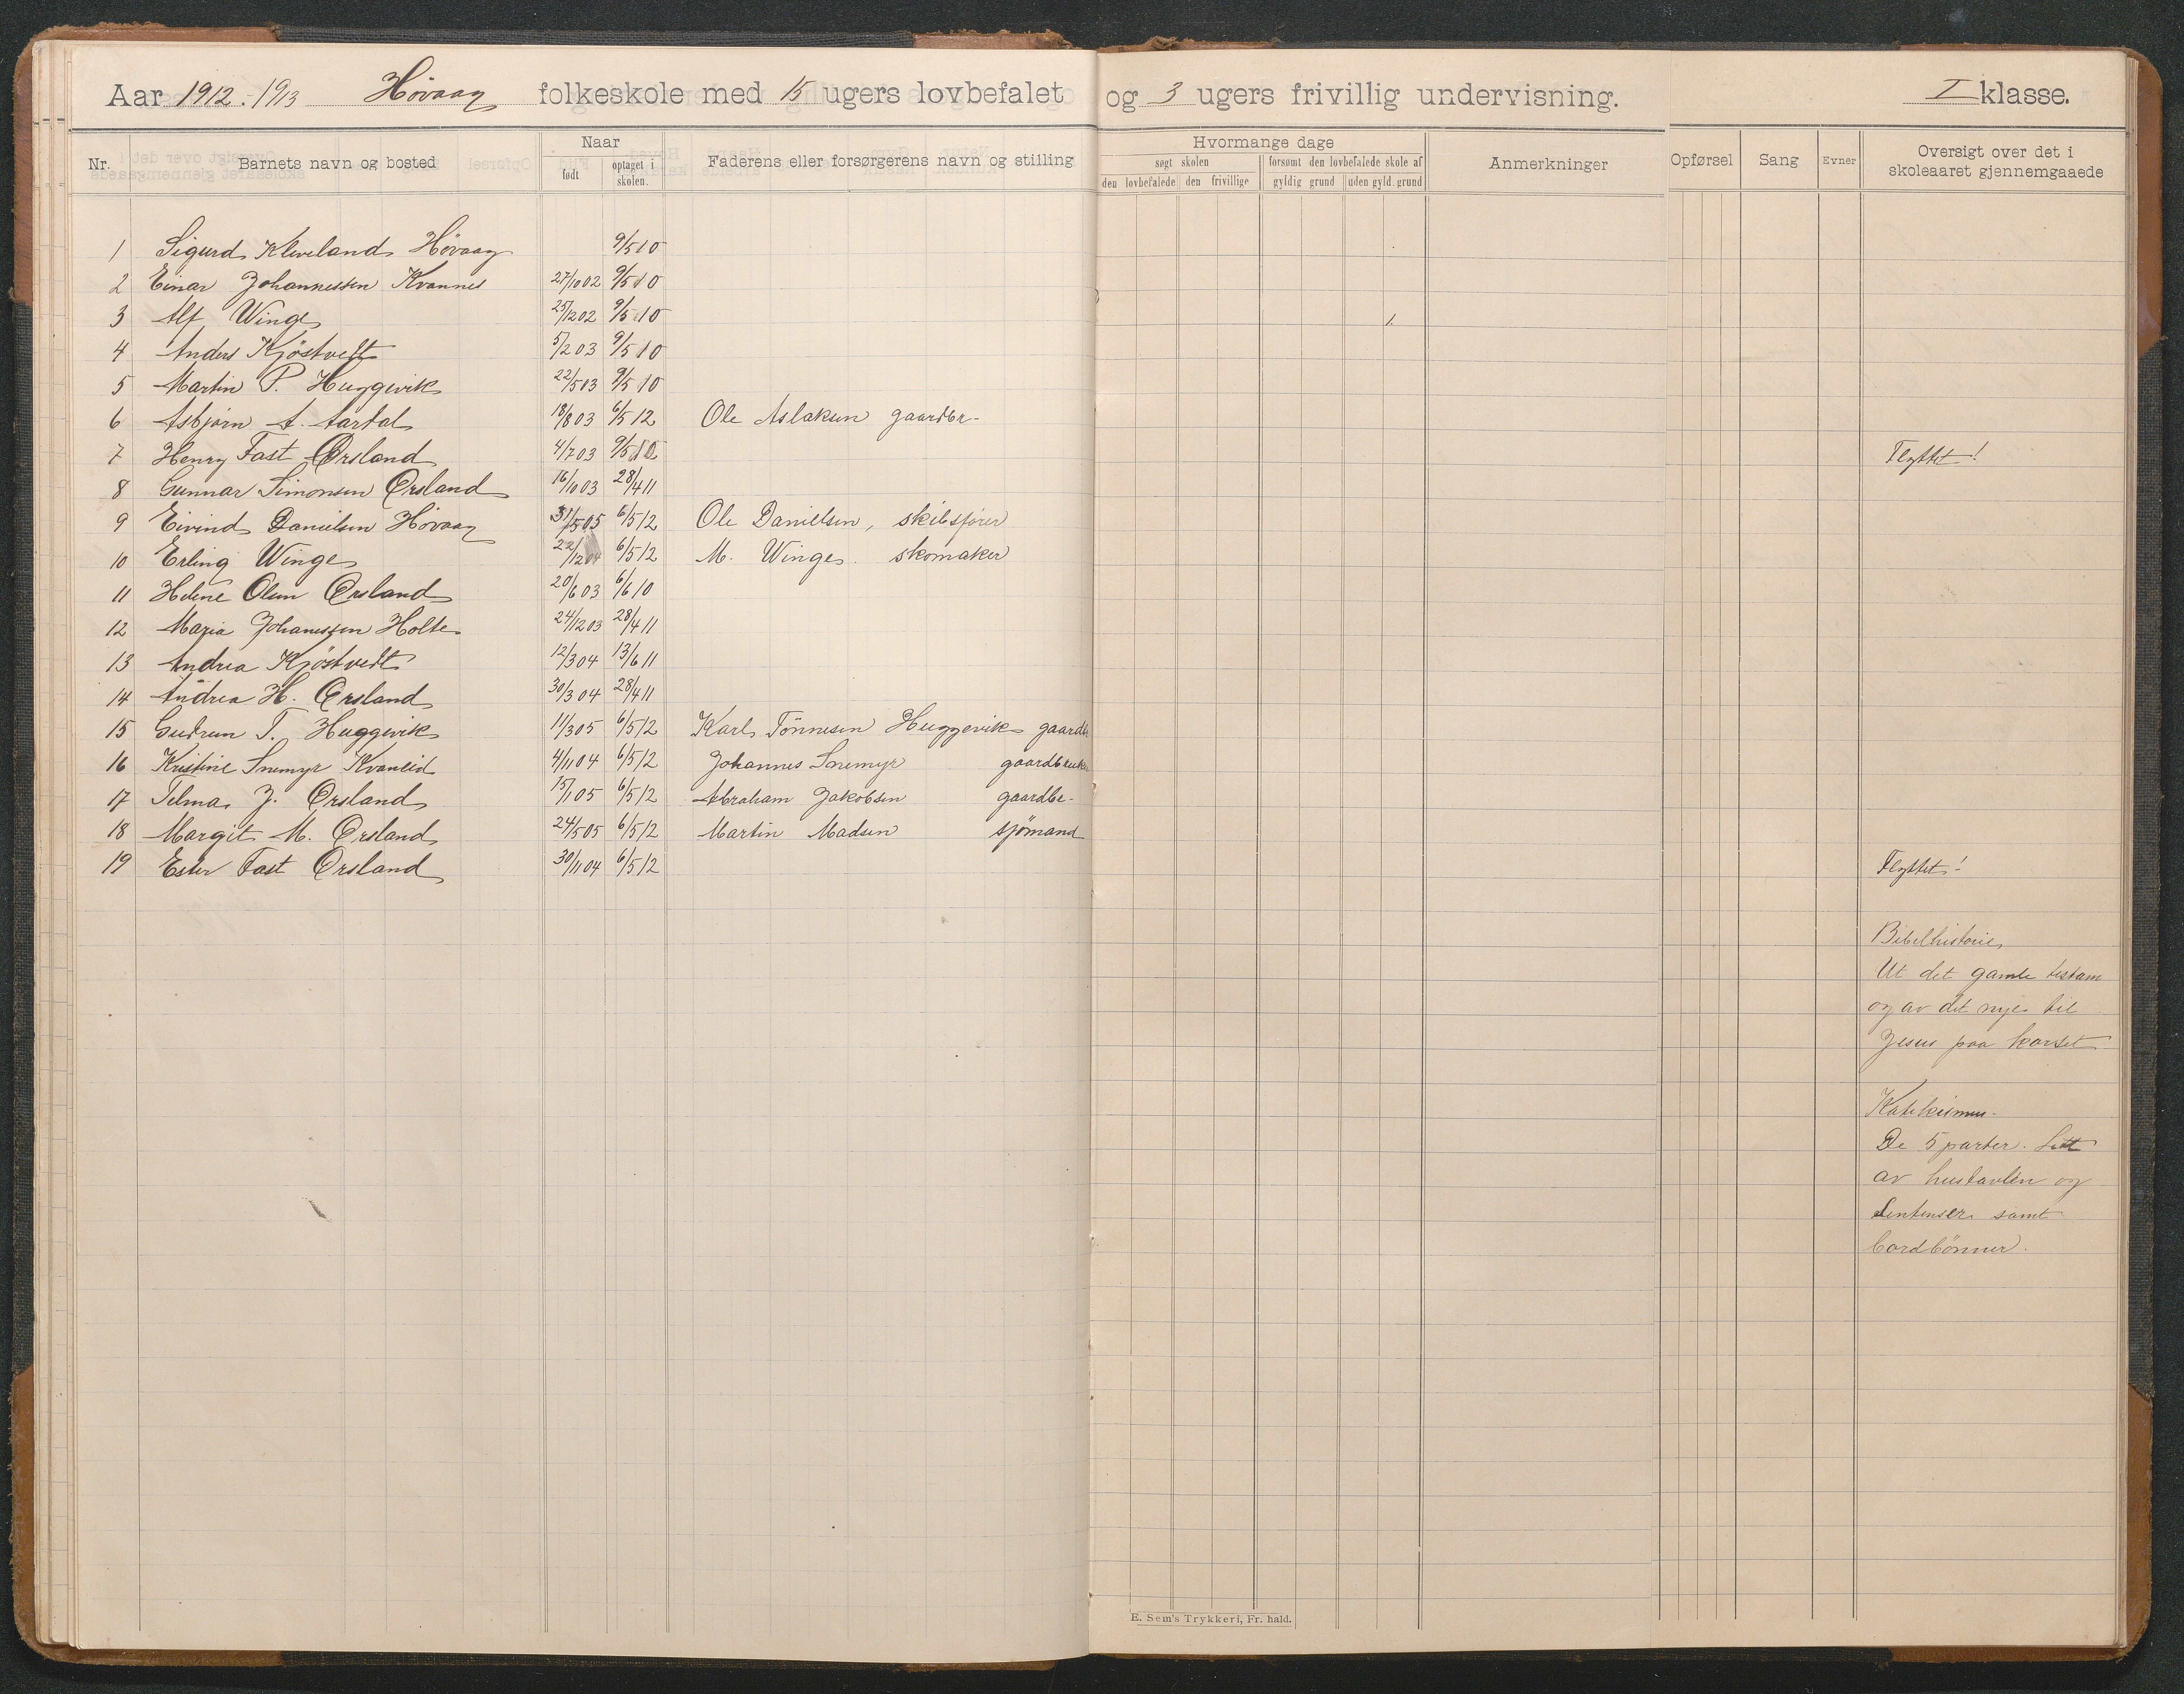 Aar 1912-1913 Høvaag folkeskole med 15 ugers lovbefalet og 3 ugers frivillig undervisning. I klasse.
Nr. Barnets navn og bosted Naar født optaget i skolen. Faderens eller forsørgerens navn og stilling Hvormange dage søgt skolen den lovbefalede den frivillige forsømt den lovbefalede skole af gyldig grund uden gyld. grund Anmerkninger Opførsel Sang Evner Oversigt over det i skoleaaret gjennemgaaede
1 Sigurd Kleveland Høvaag 9/5 10
2 Einar Johannessen Kvannes 27/10 02 9/5 10
3 Alf Winge 25/12 02 9/5 10 1.
4 Anders Kjöstvedt 5/2 03 9/5 10
5 Martin P. Huggevik 22/5 03 9/5 10
6 Asbjørn A. Aartal 18/8 03 6/5 12 Ole Aslaksen gaardbr-
7 Henry Fast Ørsland 4/7 03 9/5 10 Flyttet!
8 Gunnar Simonsen Ørsland 16/10 03 28/4 11
9 Eivind Danielsen Høvaag 31/5 05 6/5 12 Ole Danielsen, skibsfører
10 Erling Winge 22/12 04 6/5 12 M. Winge. skomaker
11 Helene Olsen Ørsland 20/6 03 6/6 10
12 Maria Johanessen Holte 24/12 03 28/4 11
13 Andrea Kjöstvedt 12/3 04 13/6 11
14 Andrea H. Ørsland 30/3 04 28/4 11
15 Gudrun T. Huggevik 11/3 05 6/5 12 Karl Tönnesen Huggevik gaardb
16 Kristine Snemyr Kvaneid 4/11 04 6/5 12 Johannes Snemyr gaardbruker
17 Telma J. Ørsland 15/1 05 6/5 12 Abraham Jakobsen gaardbr-
18 Margit M. Ørsland 24/5 05 6/5 12 Martin Madsen sjömand
19 Ester Fast Ørsland 30/11 04 6/5 12 Flyttet!
Bibelhistorie
Ut det gamle testam
og av det nye til
Jesus paa korset
Katekismus.
De 5 parter. Litt
av hustavlen og
Sentenser samt
bordbönner.
E. Sem's Trykkeri, Fr. hald.